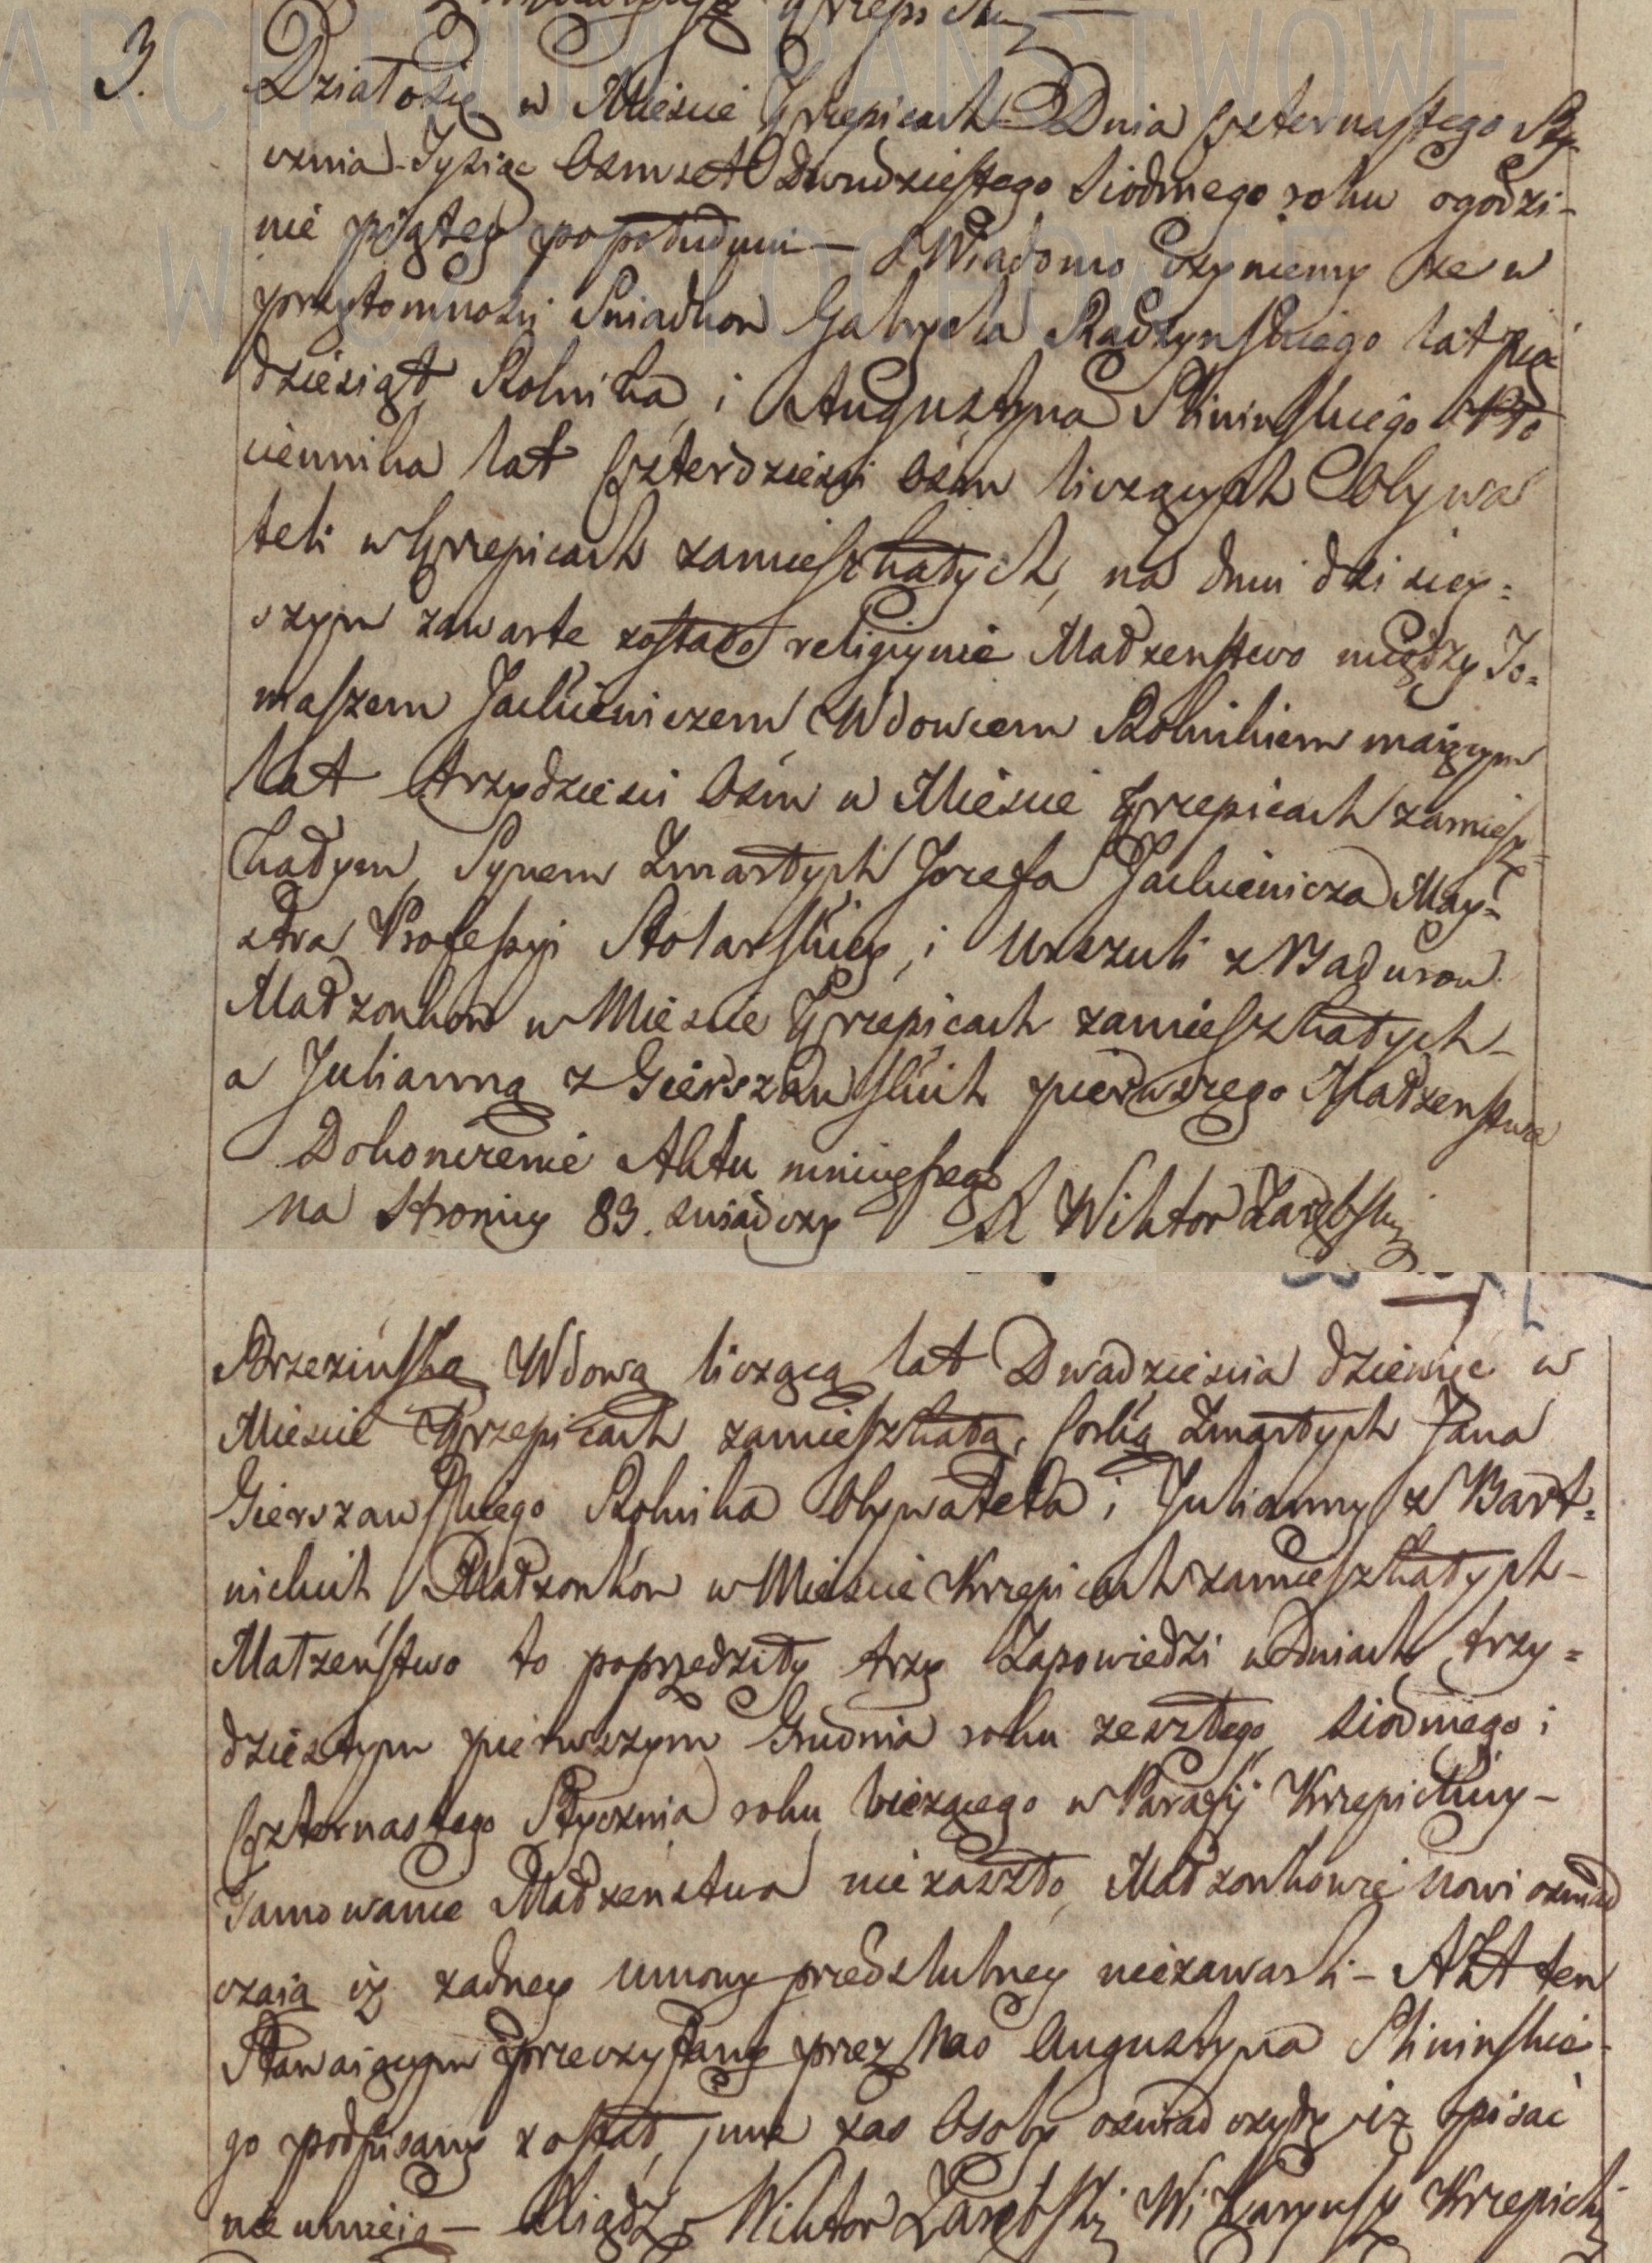 3.
Działo się w Mieście Krzepicach Dnia Czternastego Sty-
cznia Tysiąc Osmset Dwudziestego Siodmego roku ogodzi-
nie piątey popołudniu — Wiadomo czyniemy że w
przytomności Swiadkow Gabryela Radzynskiego lat pięć
dziesiąt Rolnika i Augustyna Slininskiego Płó
ciennika lat Czterdzieści Ośm liczących Obywa
teli w Krzepicach zamieszkałych, na dniu dzisiey=
szym zawarte zostało religiynie Małżenstwo między To=
maszem Jackiewiczem Wdowcem Rolnikiem maiącym
lat trzydzieści Ośm w Mieście Krzepicach zamiesz=
kałym, Synem Zmarłych Jozefa Jackiewicza May=
stra Professyi Stolarskiey, i Urszuli z Badurow
Małżonkow w Mieście Krzepicach zamieszkałych –
a Julianną z Gierszawskich pierwszego Małżenstwa
Dokonczenie Aktu ninieyszego
na Stronicy 83. swiadczy X Wiktor Zarębski
Brzezińską Wdową liczącą lat Dwadzieścia dziewięć w
Mieście Krzepicach zamieszkałą, Corką Zmarłych Jana
Gierszawskiego Rolnika Obywatela i Julianny z Bart=
nickich Małżonków w Mieście Krzepicach zamieszkałych –
Małżeństwo to poprzedziły trzy Zapowiedzi w Dniach trzy=
dziestym pierwszym Grudnia roku zeszłego, siodmego i
Czternastego Stycznia roku bieżącego w Parafij Krzepickiey –
Tamowanie Małżenstwa niezaszło, Małżonkowie Nowi oswiad
czaią iż żadney umowy przedslubney niezawarli – AKt ten
Stawaiącym przeczytany przez Nas Augustyna Slininskie-
go podpisany został, inne zas Osoby oswiadczyły iż pisać
nie umieią — Xiądz Wiktor Zarębski WiKaryusz Krzepicki